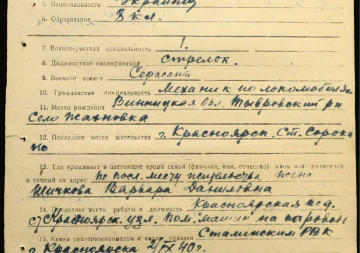 5. Национальность Украинец
6. Образование 8 кл.
7. Военно-учетная специальность 1.
8. Должностная квалификация стрелок.
9. Военное звание Сержант
10. Гражданская специальность Механик по локомобилям
11. Место рождения Винницкая обл. Тывровский р-н
село Жахновка
12. Последнее место жительства г. Красноярск. Ст. Сорокино
13. Где проживает в настоящее время семья (фамилия, имя, отчество) жены или родителей
и точный их адрес по посл. месту жительства жена
Шичкова Варвара Даниловна
14. Последнее место работы и должность Красноярская ж.д.
ст. Красноярск узл. Пом. машин. на паровозе
15. Каким райвоенкоматом и когда призван Сталинским РВК
г. Красноярска 21/IX 40 г.